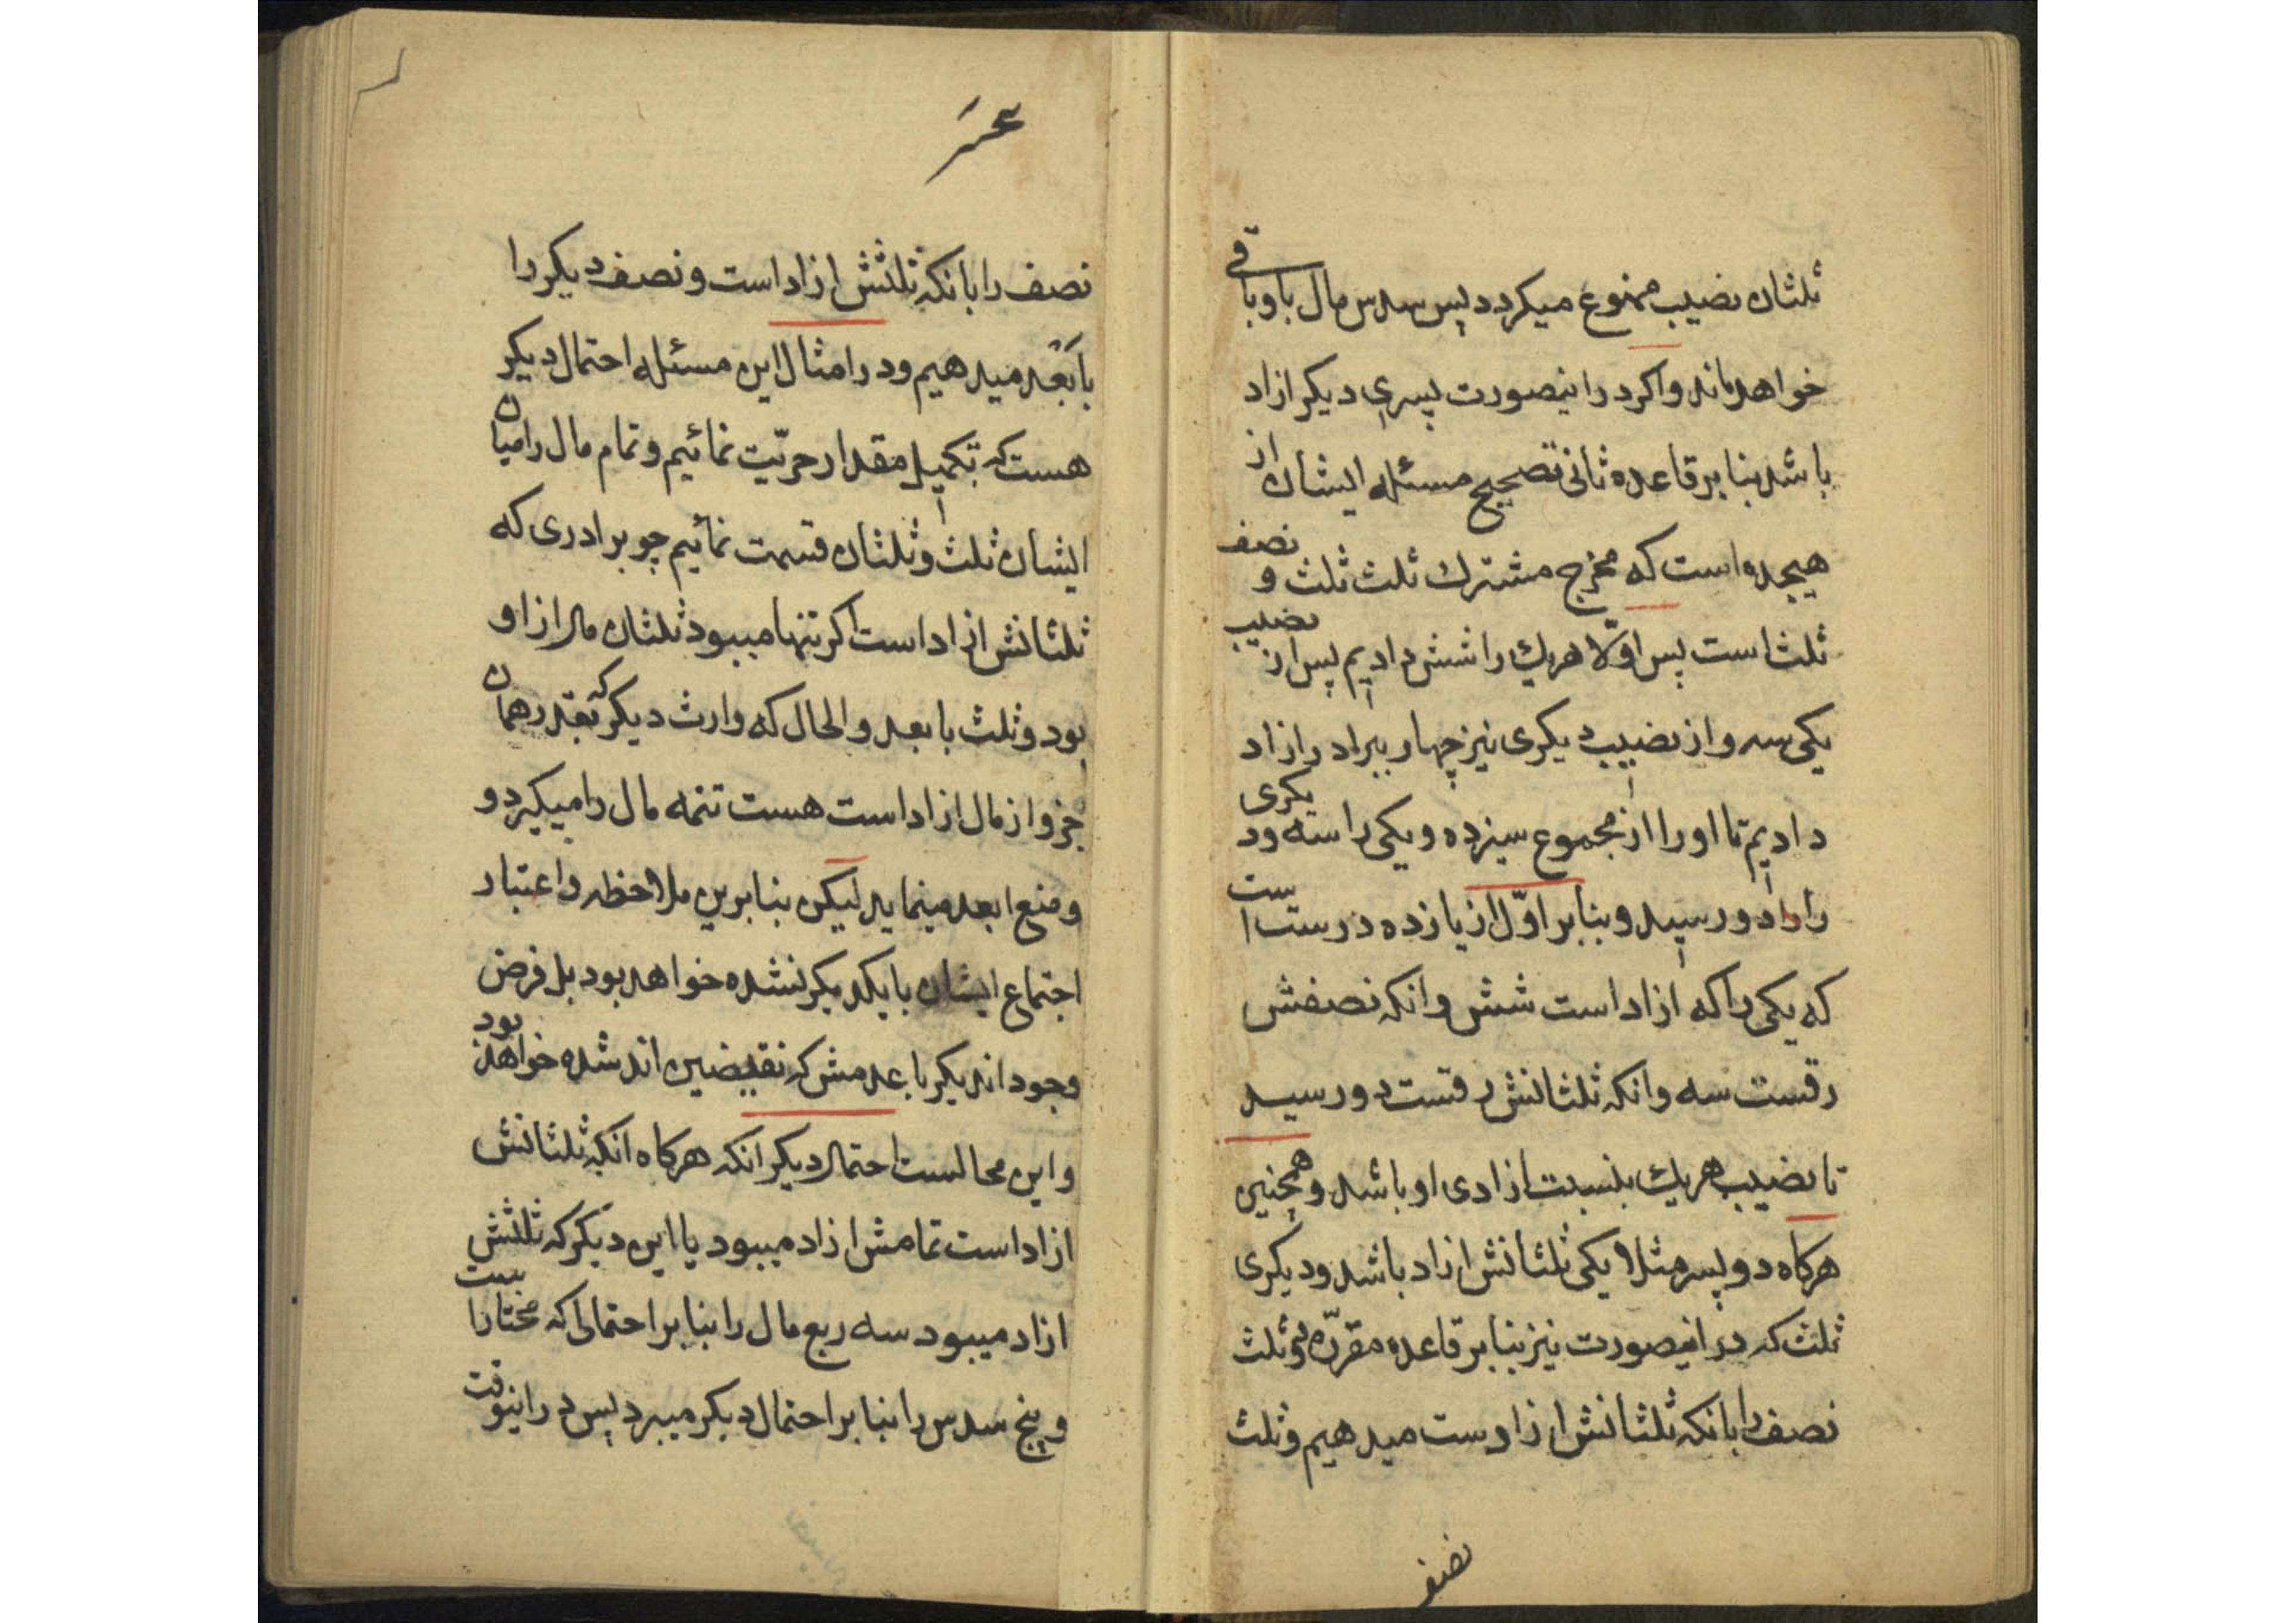 ثلثان نصیب ممنوع میکردد پس سدس مال با و باقی
خواهد ماند واکر در اینصورت پسری دیکر ازاد
باشد بنا بر قاعده ثانی تصحیح مسئله ایشان از
هیجده است که مخرج مشترك ثلث ثلث و نصف
ثلث است پس اولا هریك را شش دادیم پس از نصیب
یکی سه و از نصیب دیکری نیز چهار ببرادر ازاد
دادیم تا او را از مجموع سیزده و یکی را سه و دیکری
را دو رسید و بنا بر اوّل از یازده درست است
که یکی را که ازاد است شش وانکه نصفش
رقست سه وانکه ثلثانش رقست دو رسید
تا نصیب هریك بنسبت ازادی او باشد و همچنین
هرکاه دو پسر مثلا یکی ثلثانش ازاد باشد و دیکری
ثلث که در اینصورت نیز بنا بر قاعده مقرّره ثلث
نصف را بانکه ثلثانش ازادست میدهیم و ثلث
نصف
نصف را بانکه ثلثش ازاد است و نصف دیکر را
بابعد میدهیم و در امثال این مسئله احتمال دیکر
هست که تکمیل مقدار حریّت نمائیم و تمام مال را میان
ایشان ثلث و ثلثان قسمت نمائیم چو برادری که
ثلثانش ازاد است اکر تنها میبود ثلثان مال از او
بود و ثلث بابعد والحال که وارث دیکر که بقدر همان
جزو از مال ازاد است هست تتمه مال را میکیرد و
و منع ابعد مینماید لیکن بنا برین ملاحظه و اعتبار
اجتماع ایشان با یکدیکر نشده خواهد بود بل فرض
وجود اند یکر با عدمش که نقیضین اند شده خواهد بود
و این محالست احتمال دیکر انکه هرکاه انکه ثلثانش
ازاد است تمامش ازاد میبود یا این دیکر که ثلثش
ازاد میبود سه ربع مال را بنا بر احتمالی که مختار است
و پنج سدس را بنا بر احتمال دیکر میبرد پس در اینوقت